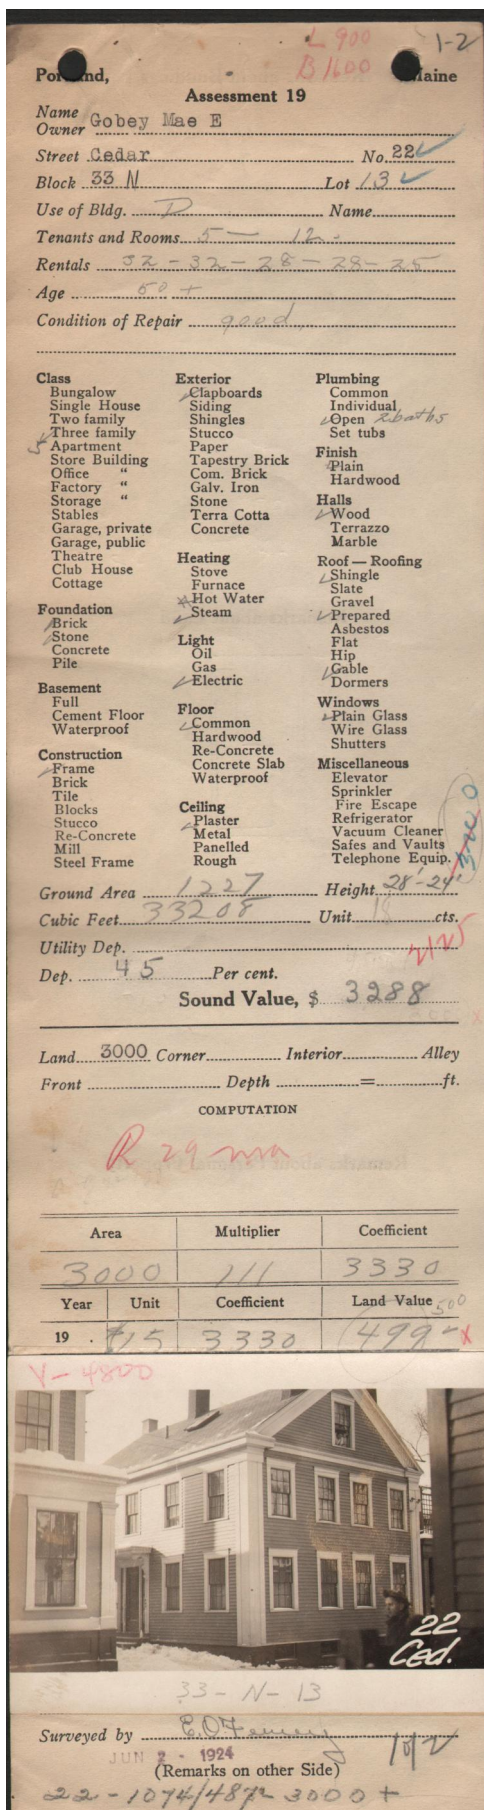 L 900
B 1600
1-2
Portland, Maine
Assessment 19
Name
Owner Gobey Mae E
Street Cedar No. 22
Block 33 N Lot 13
Use of Bldg. D Name
Tenants and Rooms 5 — 12.
Rentals 32 - 32 - 28 - 28 - 25
Age 50 +
Condition of Repair good
Class
Bungalow
Single House
Two family
Three family
5 Apartment
Store Building
Office "
Factory "
Storage "
Stables
Garage, private
Garage, public
Theatre
Club House
Cottage
Foundation
Brick
Stone
Concrete
Pile
Basement
Full
Cement Floor
Waterproof
Construction
Frame
Brick
Tile
Blocks
Stucco
Re-Concrete
Mill
Steel Frame
Exterior
Clapboards
Siding
Shingles
Stucco
Paper
Tapestry Brick
Com. Brick
Galv. Iron
Stone
Terra Cotta
Concrete
Heating
Stove
Furnace
Hot Water
Steam
Light
Oil
Gas
Electric
Floor
Common
Hardwood
Re-Concrete
Concrete Slab
Waterproof
Ceiling
Plaster
Metal
Panelled
Rough
Plumbing
Common
Individual
Open 2 baths
Set tubs
Finish
Plain
Hardwood
Halls
Wood
Terrazzo
Marble
Roof — Roofing
Shingle
Slate
Gravel
Prepared
Asbestos
Flat
Hip
Gable
Dormers
Windows
Plain Glass
Wire Glass
Shutters
Miscellaneous
Elevator
Sprinkler
Fire Escape
Refrigerator
Vacuum Cleaner
Safes and Vaults
Telephone Equip.
Ground Area 1227 Height 28'-24'
Cubic Feet 33208 Unit 18 cts.
Utility Dep.
2125
Dep. 45 Per cent.
Sound Value, $ 3288
Land 3000 Corner Interior Alley
Front Depth = ft.
COMPUTATION
Area Multiplier Coefficient
3000 111 3330
Year Unit Coefficient Land Value 500
19 . $15 3330 499- x
V - 4800
22
Ced.
33 - N - 13
Surveyed by
JUN 2 - 1924
1 of 2
(Remarks on other Side)
22 - 1074/487- 3000 +